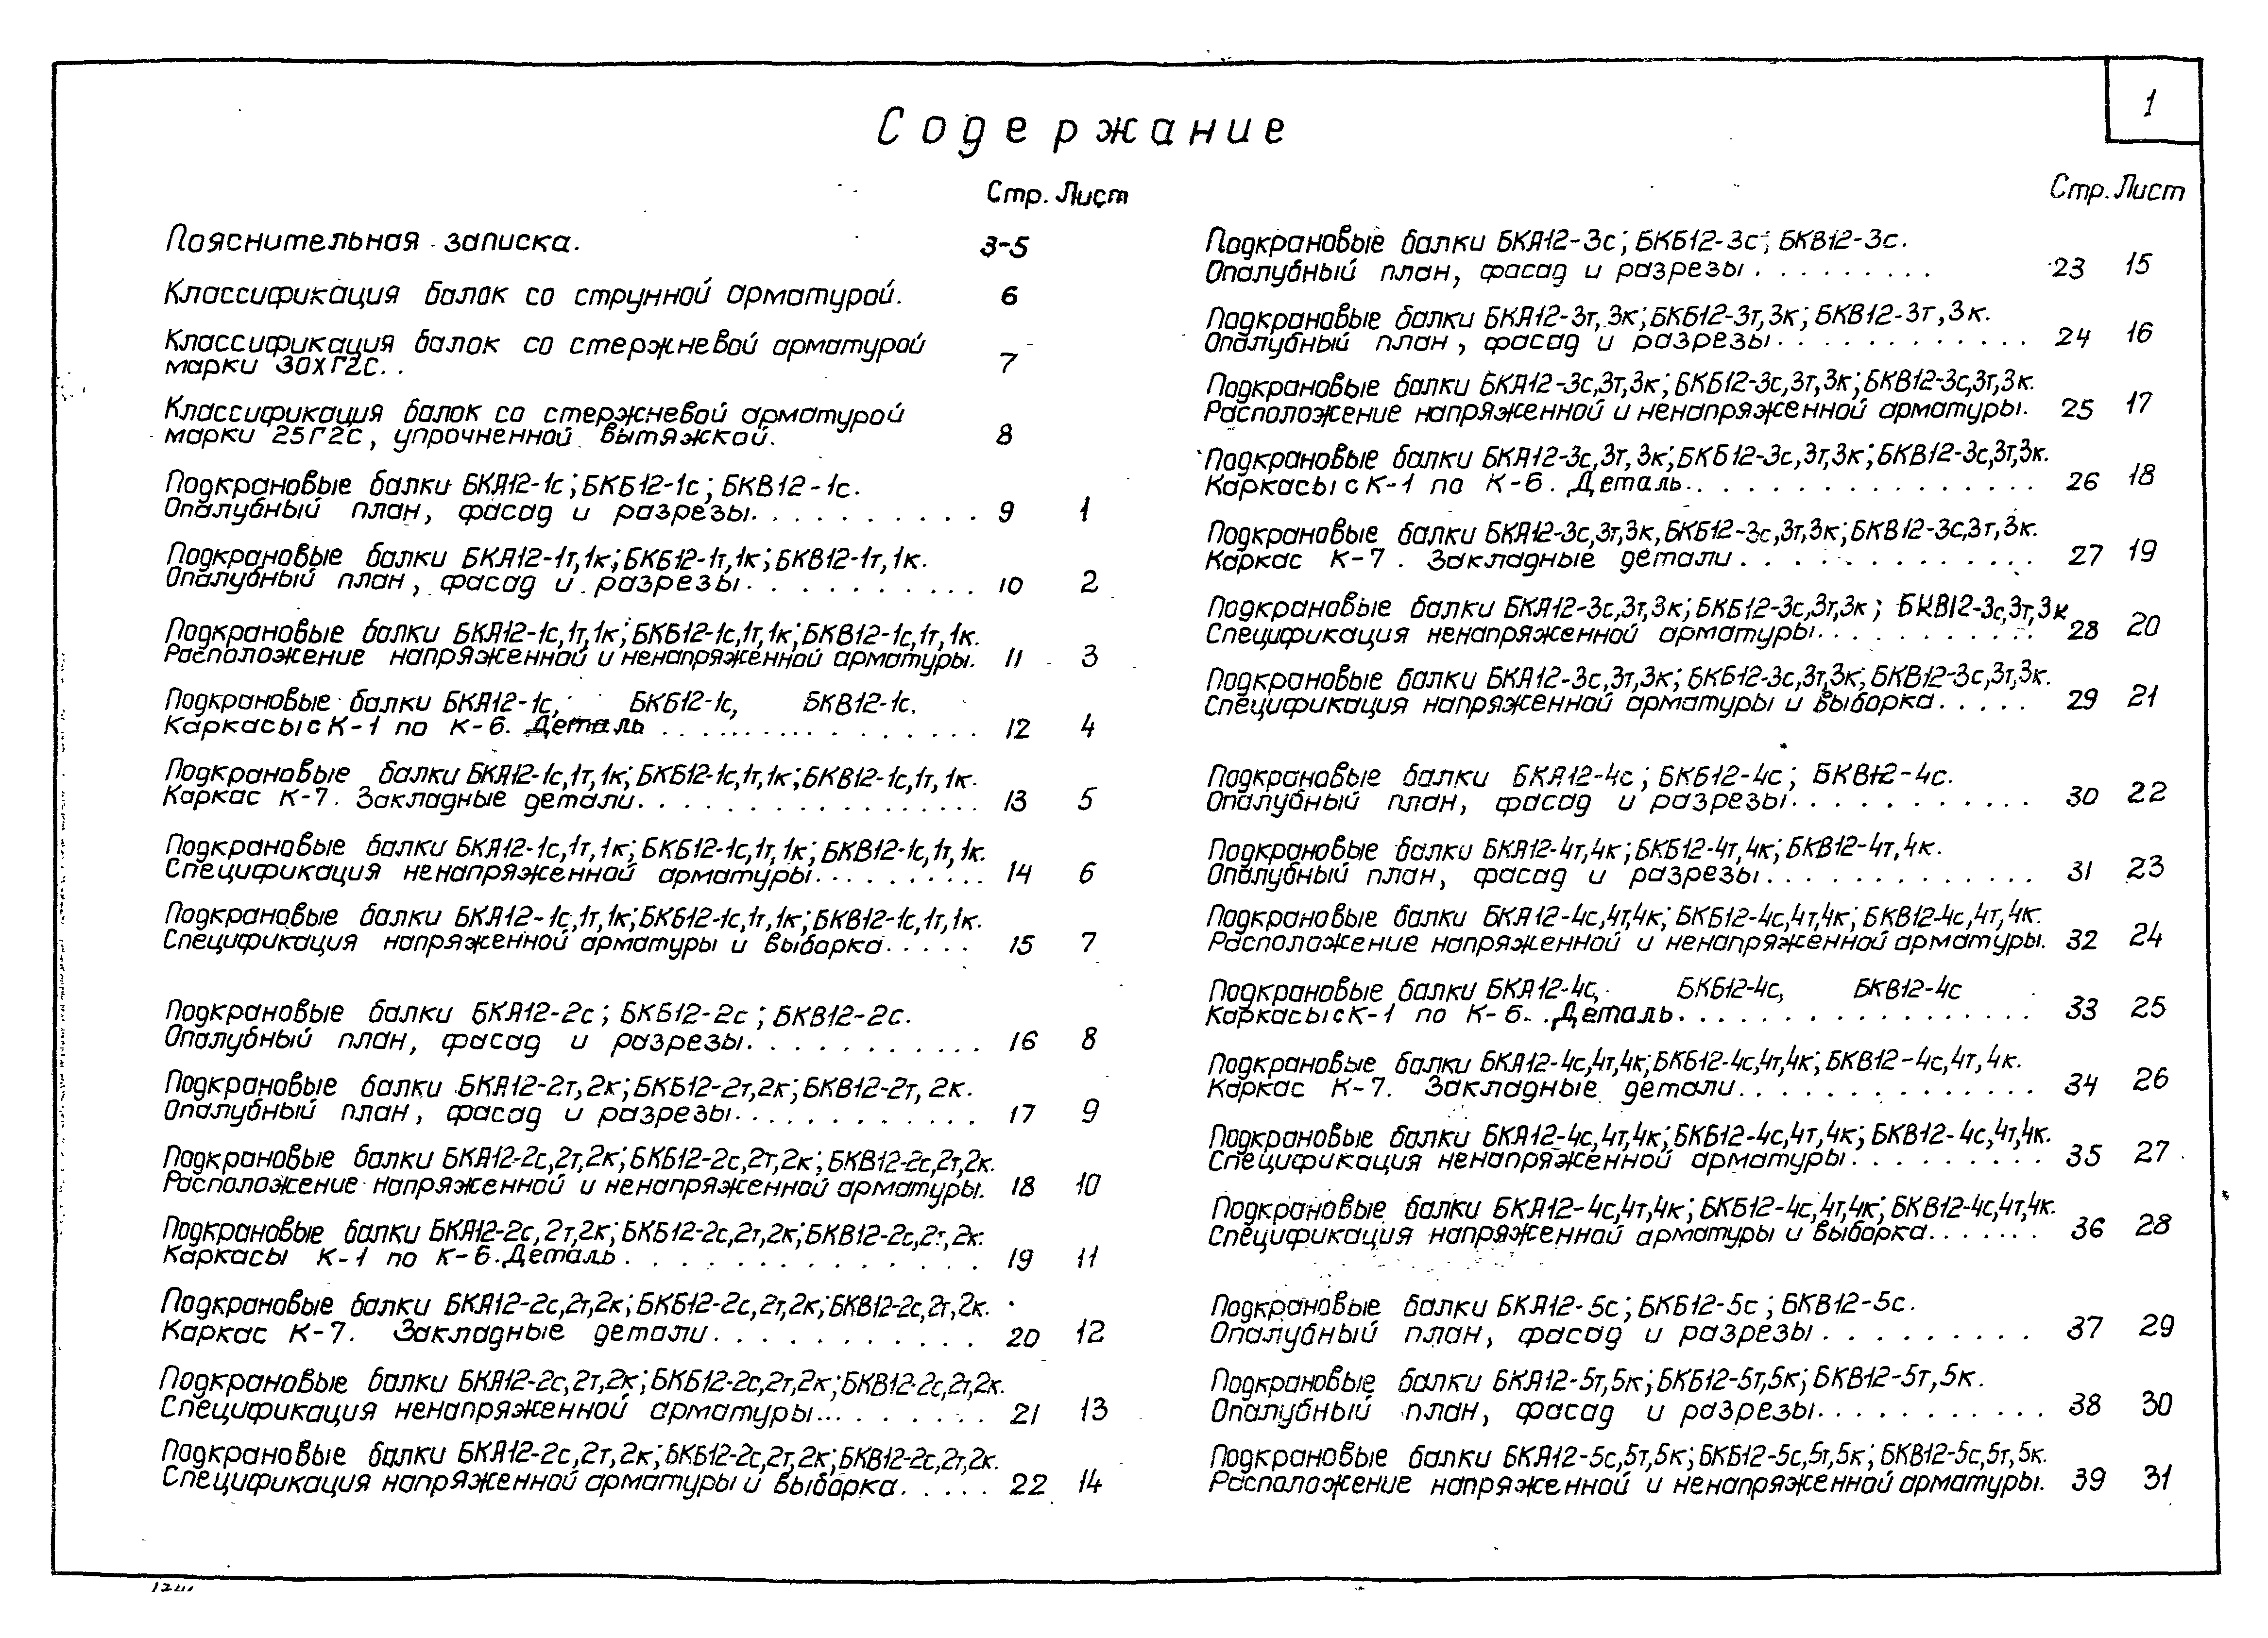 1
Содержание
Стр. Лист
Пояснительная записка. 3-5
Классификация балок со струнной арматурой. 6
Классификация балок со стержневой арматурой
марки 30ХГ2С.. 7
Классификация балок со стержневой арматурой
марки 25Г2С, упрочненной вытяжкой. 8
Подкрановые балки БКА12-1с; БКБ12-1с; БКВ12-1с.
Опалубный план, фасад и разрезы. . . . . . . . . . 9 1
Подкрановые балки БКА12-1т,1к; БКБ12-1т,1к; БКВ12-1т,1к.
Опалубный план, фасад и разрезы. . . . . . . . . . 10 2
Подкрановые балки БКА12-1с,1т,1к; БКБ12-1с,1т,1к; БКВ12-1с,1т,1к.
Расположение напряженной и ненапряженной арматуры. 11 3
Подкрановые балки БКА12-1с, БКБ12-1с, БКВ12-1с.
Каркасы с К-1 по К-6. Деталь . . . . . . . . . . . . . . 12 4
Подкрановые балки БКА12-1с,1т,1к; БКБ12-1с,1т,1к; БКВ12-1с,1т,1к.
Каркас К-7. Закладные детали. . . . . . . . . . . . . . 13 5
Подкрановые балки БКА12-1с,1т,1к; БКБ12-1с,1т,1к; БКВ12-1с,1т,1к.
Спецификация ненапряженной арматуры. . . . . . . . . 14 6
Подкрановые балки БКА12-1с,1т,1к; БКБ12-1с,1т,1к; БКВ12-1с,1т,1к.
Спецификация напряженной арматуры и выборка. . . . . 15 7
Подкрановые балки БКА12-2с; БКБ12-2с; БКВ12-2с.
Опалубный план, фасад и разрезы. . . . . . . . . . . 16 8
Подкрановые балки БКА12-2т,2к; БКБ12-2т,2к; БКВ12-2т,2к.
Опалубный план, фасад и разрезы. . . . . . . . . . . 17 9
Подкрановые балки БКА12-2с,2т,2к; БКБ12-2с,2т,2к; БКВ12-2с,2т,2к.
Расположение напряженной и ненапряженной арматуры. 18 10
Подкрановые балки БКА12-2с,2т,2к; БКБ12-2с,2т,2к; БКВ12-2с,2т,2к.
Каркасы К-1 по К-6. Деталь . . . . . . . . . . . . . . 19 11
Подкрановые балки БКА12-2с,2т,2к; БКБ12-2с,2т,2к; БКВ12-2с,2т,2к.
Каркас К-7. Закладные детали. . . . . . . . . . . 20 12
Подкрановые балки БКА12-2с,2т,2к; БКБ12-2с,2т,2к; БКВ12-2с,2т,2к.
Спецификация ненапряженной арматуры. . . . . . . . . 21 13
Подкрановые балки БКА12-2с,2т,2к; БКБ12-2с,2т,2к; БКВ12-2с,2т,2к.
Спецификация напряженной арматуры и выборка. . . . . 22 14
Стр. Лист
Подкрановые балки БКА12-3с; БКБ12-3с; БКВ12-3с.
Опалубный план, фасад и разрезы . . . . . . . . . 23 15
Подкрановые балки БКА12-3т,3к; БКБ12-3т,3к; БКВ12-3т,3к.
Опалубный план, фасад и разрезы. . . . . . . . . . . . 24 16
Подкрановые балки БКА12-3с,3т,3к; БКБ12-3с,3т,3к; БКВ12-3с,3т,3к.
Расположение напряженной и ненапряженной арматуры. 25 17
Подкрановые балки БКА12-3с,3т,3к; БКБ12-3с,3т,3к; БКВ12-3с,3т,3к.
Каркасы с К-1 по К-6. Деталь. . . . . . . . . . . . . . . 26 18
Подкрановые балки БКА12-3с,3т,3к, БКБ12-3с,3т,3к; БКВ12-3с,3т,3к.
Каркас К-7. Закладные детали . . . . . . . . . . . . 27 19
Подкрановые балки БКА12-3с,3т,3к; БКБ12-3с,3т,3к; БКВ12-3с,3т,3к
Спецификация ненапряженной арматуры. . . . . . . . . . 28 20
Подкрановые балки БКА12-3с,3т,3к; БКБ12-3с,3т,3к; БКВ12-3с,3т,3к.
Спецификация напряженной арматуры и выборка. . . . . 29 21
Подкрановые балки БКА12-4с; БКБ12-4с; БКВ12-4с.
Опалубный план, фасад и разрезы. . . . . . . . . . . 30 22
Подкрановые балки БКА12-4т,4к; БКБ12-4т,4к; БКВ12-4т,4к.
Опалубный план, фасад и разрезы. . . . . . . . . . . . 31 23
Подкрановые балки БКА12-4с,4т,4к; БКБ12-4с,4т,4к; БКВ12-4с,4т,4к.
Расположение напряженной и ненапряженной арматуры. 32 24
Подкрановые балки БКА12-4с, БКБ12-4с, БКВ12-4с
Каркасы с К-1 по К-6. Деталь. . . . . . . . . . . . . . . 33 25
Подкрановые балки БКА12-4с,4т,4к; БКБ12-4с,4т,4к; БКВ12-4с,4т,4к.
Каркас К-7. Закладные детали. . . . . . . . . . . . 34 26
Подкрановые балки БКА12-4с,4т,4к; БКБ12-4с,4т,4к; БКВ12-4с,4т,4к.
Спецификация ненапряженной арматуры. . . . . . . . . 35 27
Подкрановые балки БКА12-4с,4т,4к; БКБ12-4с,4т,4к; БКВ12-4с,4т,4к.
Спецификация напряженной арматуры и выборка. . . . . . 36 28
Подкрановые балки БКА12-5с; БКБ12-5с; БКВ12-5с.
Опалубный план, фасад и разрезы . . . . . . . . . 37 29
Подкрановые балки БКА12-5т,5к; БКБ12-5т,5к; БКВ12-5т,5к.
Опалубный план, фасад и разрезы. . . . . . . . . . . 38 30
Подкрановые балки БКА12-5с,5т,5к; БКБ12-5с,5т,5к; БКВ12-5с,5т,5к.
Расположение напряженной и ненапряженной арматуры. 39 31